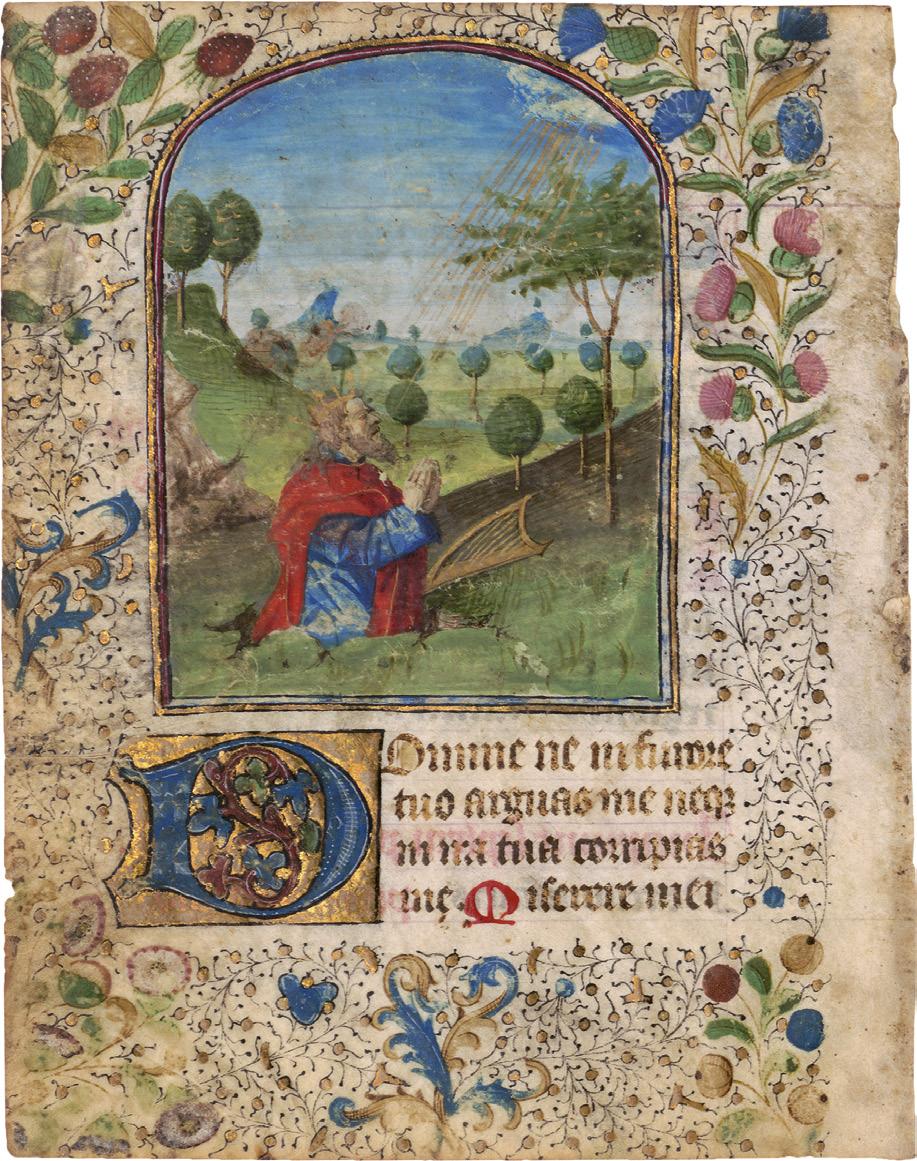 Domine ne in furore
tuo arguas me neqꝫ
in ira tua corripias
me. Miserere mei